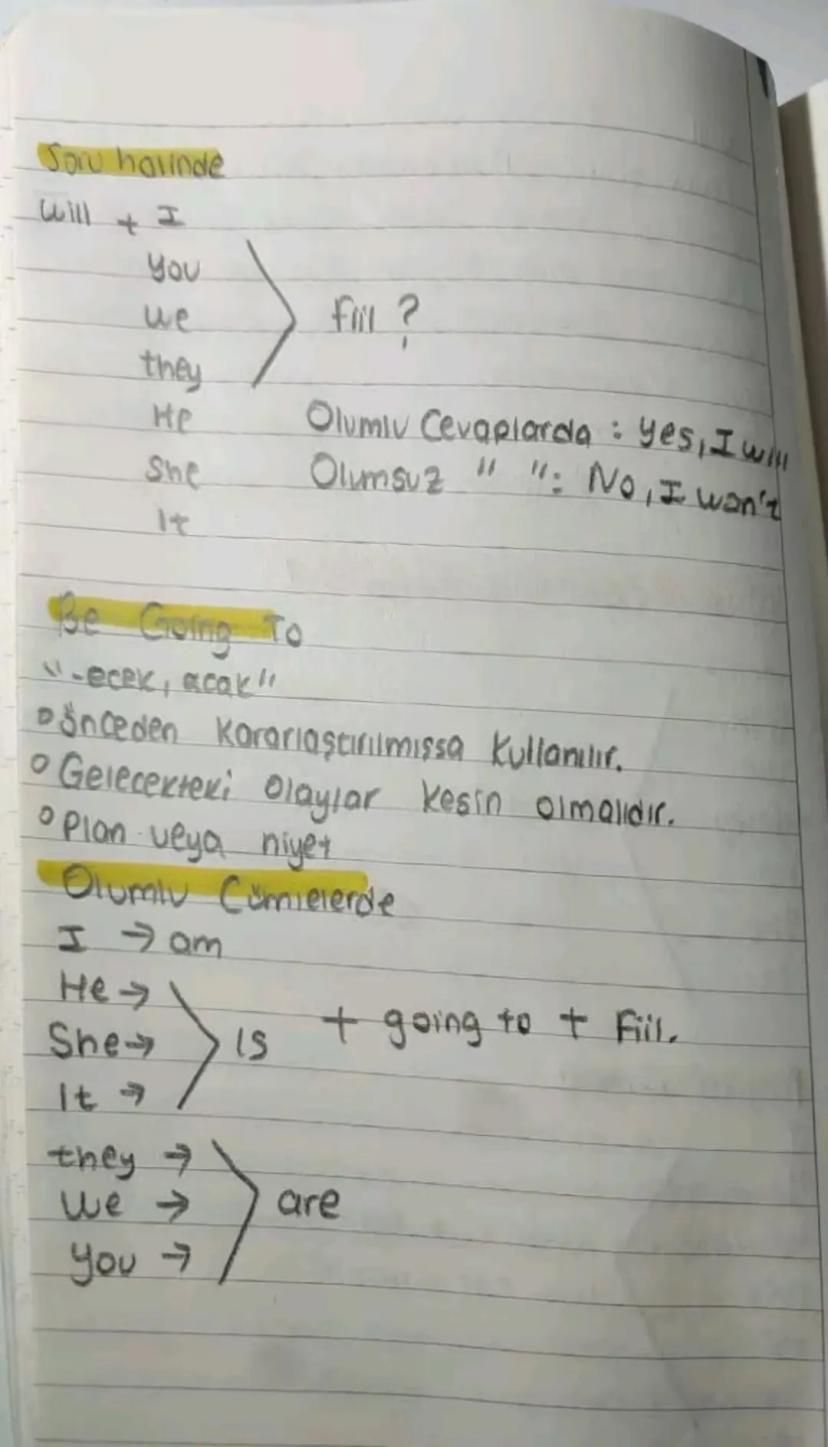 Soru halinde
will + I
you
we
fiil ?
they
He
Olumlu Cevaplarda : yes, I will
She
Olumsuz " " : No, I won't
It
Be Going To
"-ecek, acak"
önceden kararlaştırılmışsa kullanılır.
Gelecekteki olaylar kesin olmalıdır.
Plan veya niyet
Olumlu Cümlelerde
I → am
He →
She → is + going to + Fiil.
It →
they →
we → are
you →